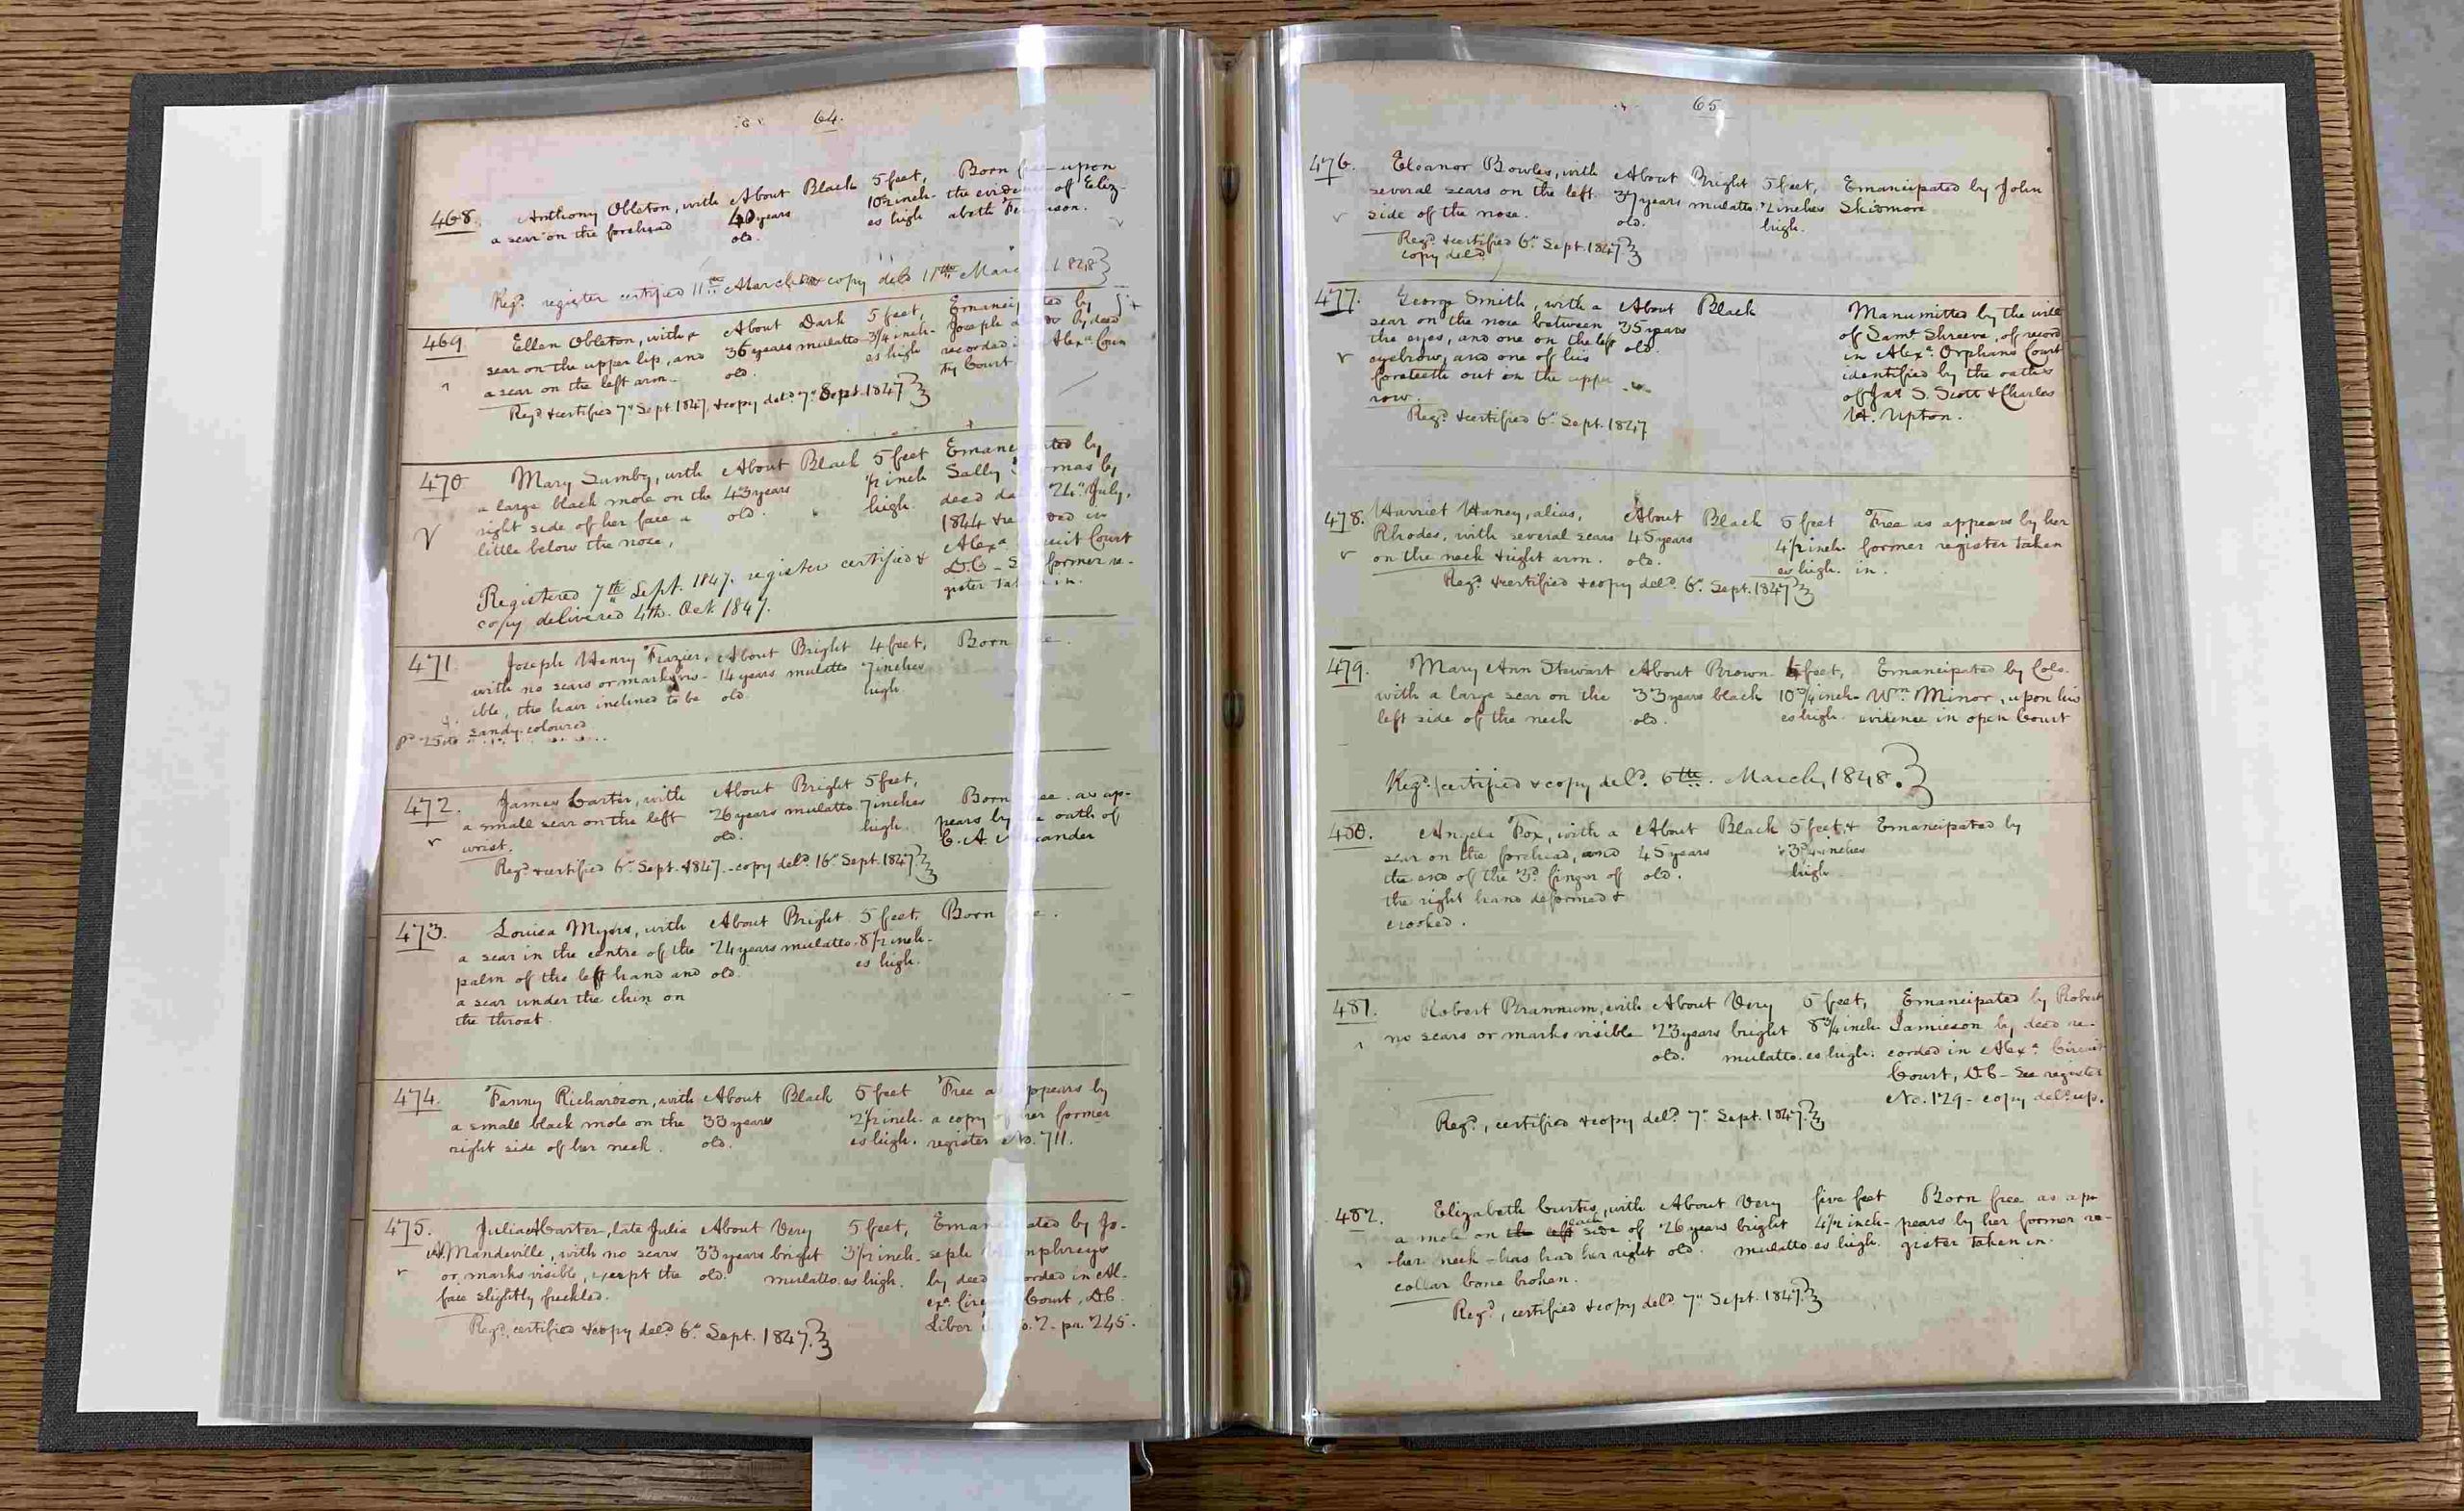 64.
468. Anthony Obleton, with About Black 5 feet, Born upon
a scar on the forehead 40 years 10½ inch- the evidence of Eliz-
old. es high abeth Ferguson.
Reg.d register certified 11th March copy del.d 11th March 1848}
469. Ellen Obleton, with a About Dark 5 feet, Emancipated by
scar on the upper lip, and 36 years mulatto 3¼ inch- Joseph by deed
a scar on the left arm. old. es high recorded in Alex.a Coun
ty Court
Reg.d & certified 7" Sept. 1847, & copy del.d 7" Sept. 1847}
470 Mary Sumby, with About Black 5 feet Emancipated by
a large black mole on the 43 years ½ inch Sally Thomas by
right side of her face a old. high. deed da 24" July,
little below the nose, 1844 & recorded in
Alex.a Circuit Court
D.C - See former re-
gister taken in.
Registered 7th Sept. 1847. register certified &
copy delivered 4th. Oct 1847.
471. Joseph Henry Frazier, About Bright 4 feet, Born
with no scars or marks vis- 14 years mulatto 7 inches
ible, the hair inclined to be old. high.
sandy coloured
472. James Carter, with About Bright 5 feet,
a small scar on the left 26 years mulatto 7 inches Born free as ap-
wrist. old. high. pears by the oath of
C. A. Alexander
Reg.d & certified 6" Sept. 1847. - copy del.d 16" Sept. 1847}
473. Louisa Myers, with About Bright 5 feet, Born
a scar in the centre of the 24 years mulatto 8½ inch-
palm of the left hand and old. es high.
a scar under the chin on
the throat.
474. Fanny Richardson, with About Black 5 feet Free as appears by
a small black mole on the 33 years 2½ inch- a copy of her former
right side of her neck. old. es high. register No. 711.
475. Julia Carter, late Julia About Very 5 feet, Emancipated by Jo-
A. Mandeville, with no scars 33 years bright 3½ inch- seph Humphreys
or marks visible, except the old. mulatto es high. by deed recorded in Al-
face slightly freckled. ex.a Circuit Court, D.C.
Liber No. 2 - pa. 245.
Reg.d, certified & copy del.d 6" Sept. 1847.}
65
476. Eleanor Bowles, with About Bright 5 feet, Emancipated by John
several scars on the left 37 years mulatto 2 inches Skidmore
side of the nose. old. high.
Reg.d & certified 6" Sept. 1847}
copy del.d
477. George Smith, with a About Black Manumitted by the will
scar on the nose between 35 years of Sam.l Shreeve, of record
the eyes, and one on the left old. in Alex.a Orphans Court
eyebrow, and one of his identified by the oaths
foreteeth out in the upper of Jas S. Scott & Charles
row. H. Upton.
Reg.d & certified 6" Sept. 1847
478. Harriet Haney, alias, About Black 5 feet Free as appears by her
Rhodes, with several scars 45 years 4½ inch- former register taken
on the neck & right arm. old. es high. in.
Reg.d & certified & copy del.d 6" Sept. 1847}
479. Mary Ann Stewart About Brown 4 feet, Emancipated by Colo.
with a large scar on the 33 years black 10¾ inch- Wm Minor, upon his
left side of the neck old. es high. evidence in open Court
Reg.d certified & copy del.d 6th. March, 1848.}
480. Angela Fox, with a About Black 5 feet & Emancipated by
scar on the forehead, and 45 years inches
the end of the 3.d finger of old. high
the right hand deformed &
crooked.
481. Robert Brannum, with About Very 5 feet, Emancipated by Robert
no scars or marks visible 23 years bright 8¾ inch- Jamieson by deed re-
old. mulatto. es high. corded in Alex.a Circuit
Court, D.C - See register
No. 129 - copy del.d up.
Reg.d, certified & copy del.d 7" Sept. 1847.}
482. Elizabeth Curtis, with About Very five feet Born free as ap-
a mole on the left each side of 26 years bright 4½ inch- pears by her former re-
her neck - has had her right old. mulatto es high. gister taken in.
collar bone broken.
Reg.d, certified & copy del.d 7" Sept. 1847.}